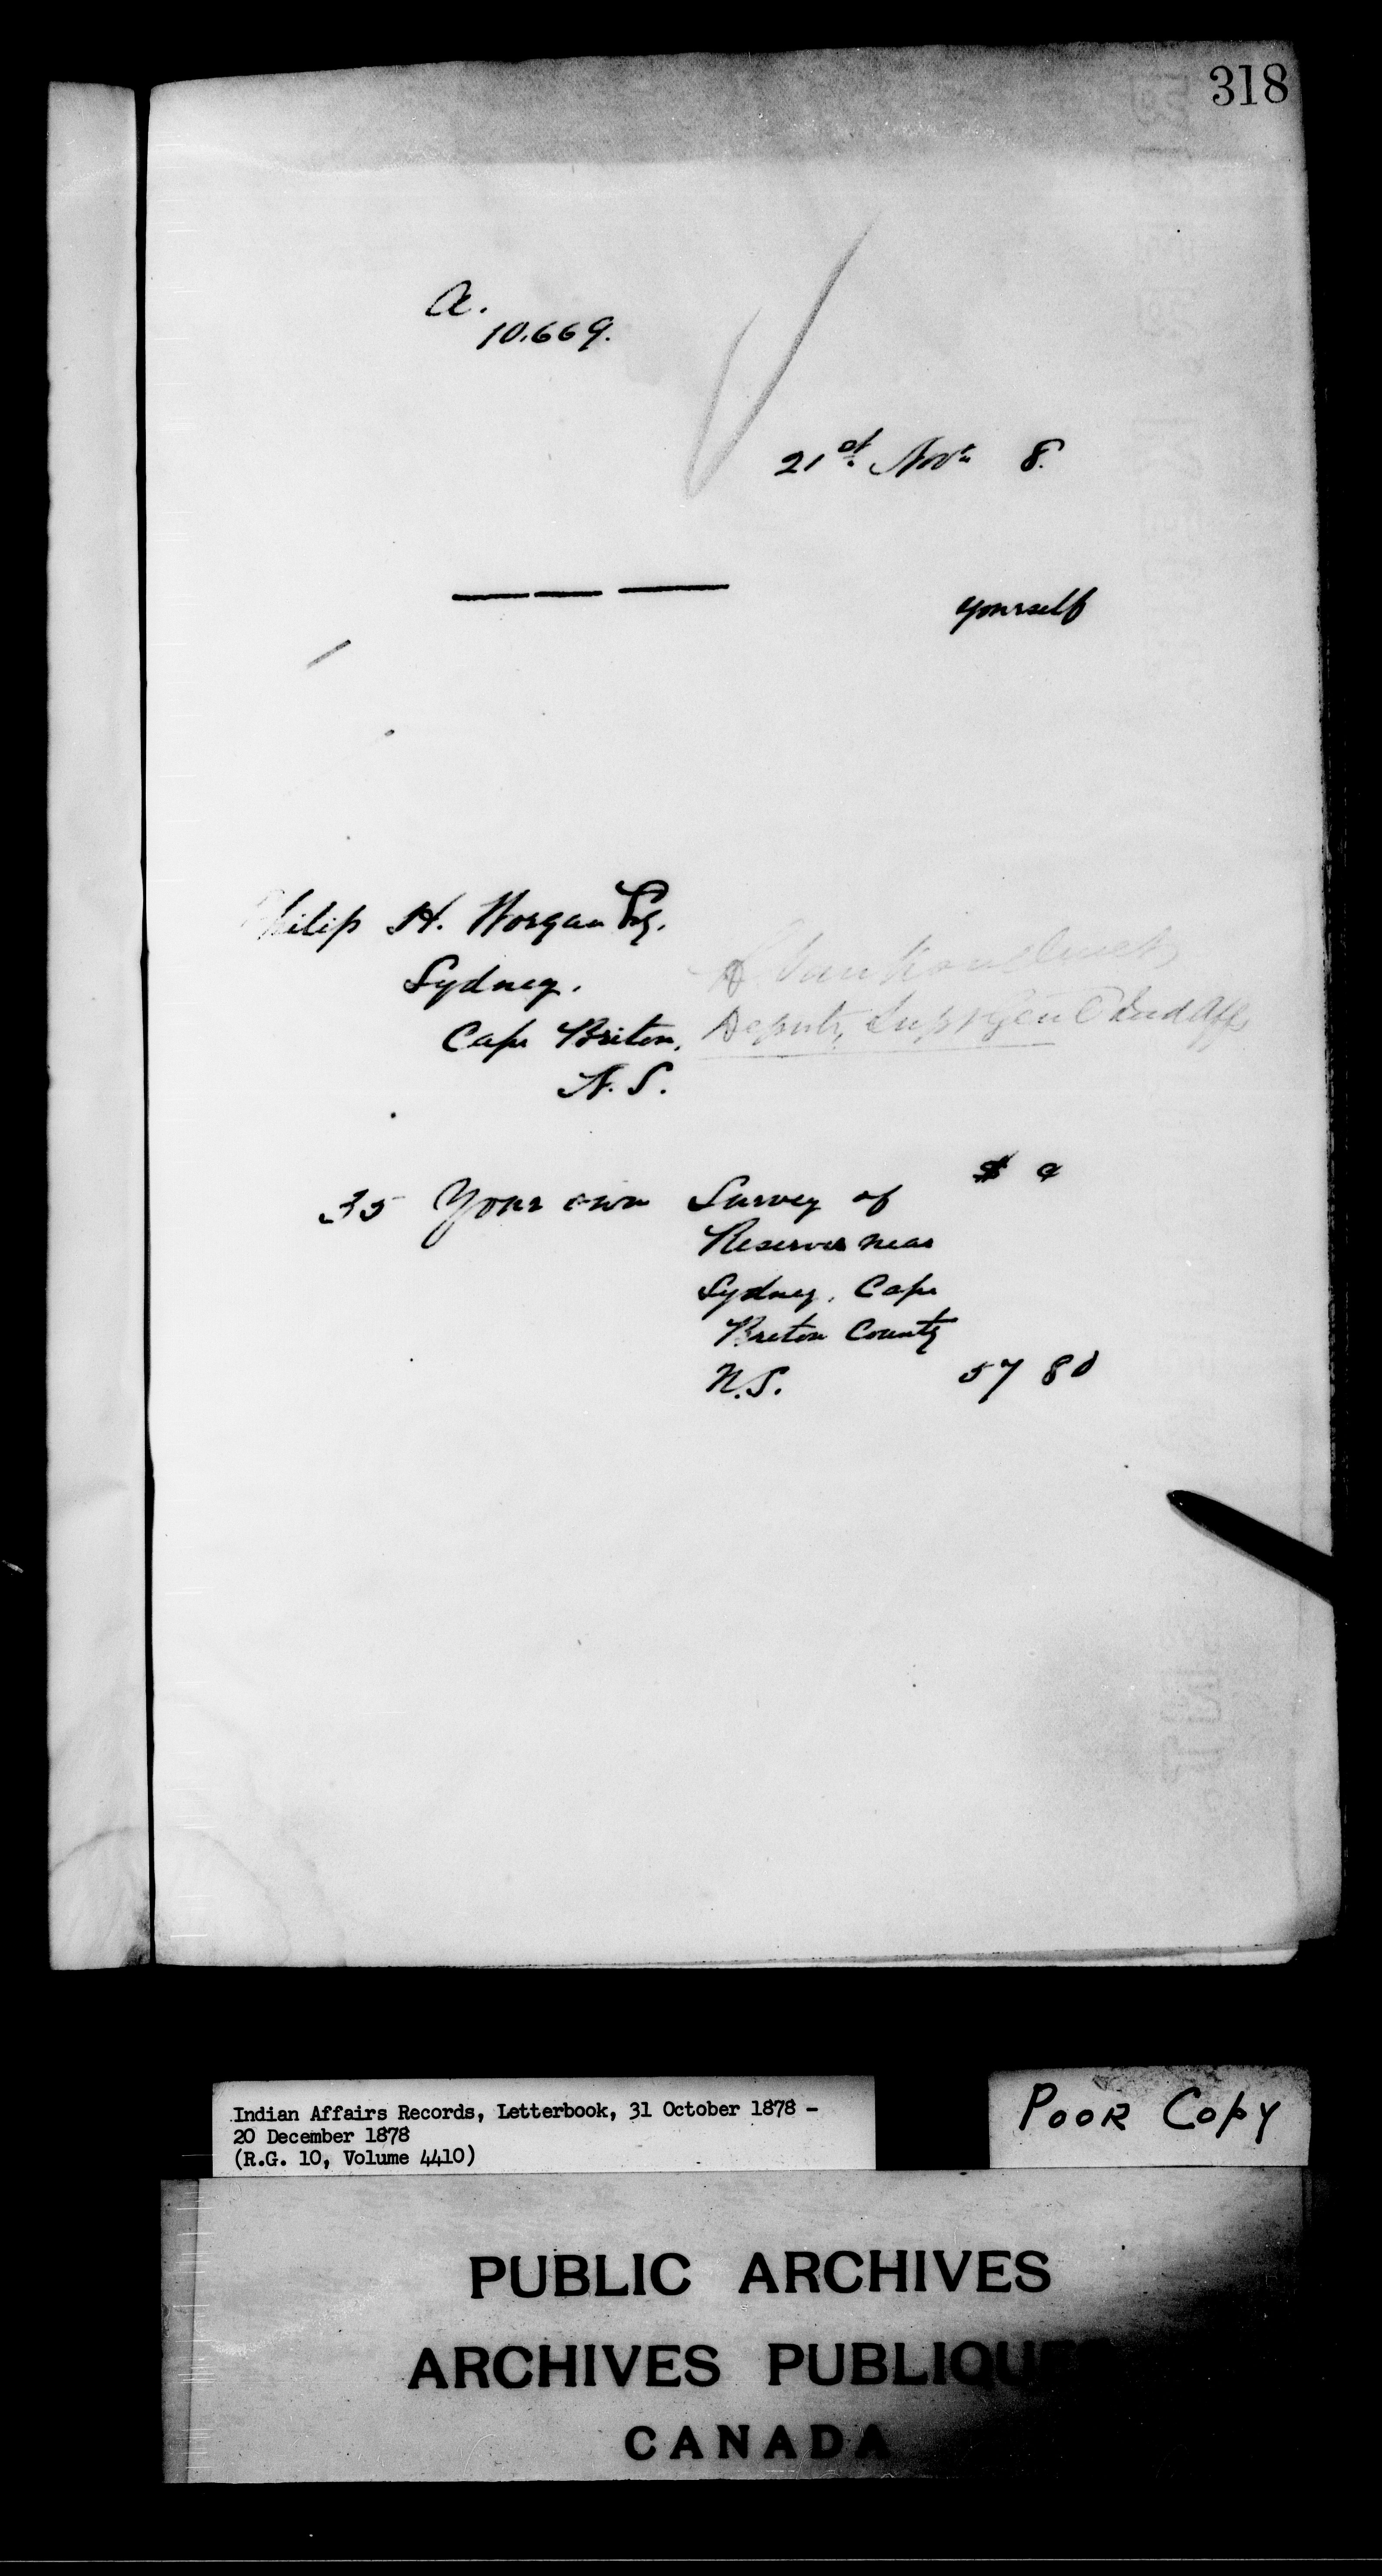 318
A.
10.669.
21st Novr 8.
yourself
Philip H. Worgan Esq.
Sydney.
Cape Briton,
N.S.
L Vankoughnet
Deputy Supt Genl Ind Affs
$ c
35 Your own Survey of
Reserves near
Sydney, Cape
Breton County
N.S. 57 80
Indian Affairs Records, Letterbook, 31 October 1878 -
20 December 1878
(R.G. 10, Volume 4410)
POOR COPY
PUBLIC ARCHIVES
ARCHIVES PUBLIQUES
CANADA